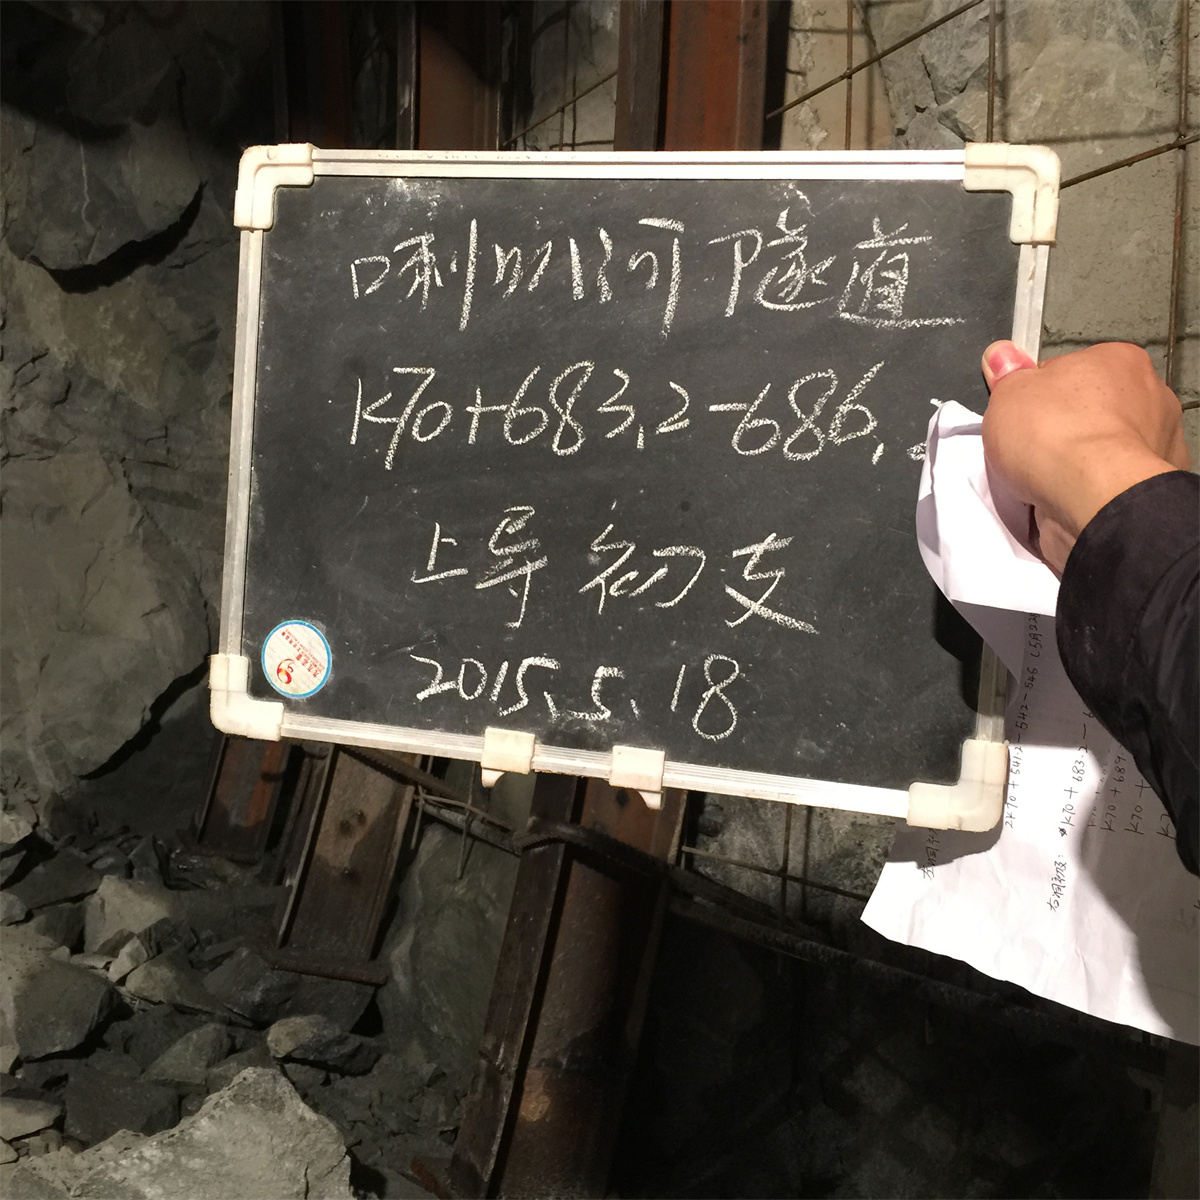 喇叭河隧道
K70+683.2-686.
上导初支
2015.5.18
2K70+541.2-542-546
右洞初支: K70+683.2-6
K70+689.
K70+